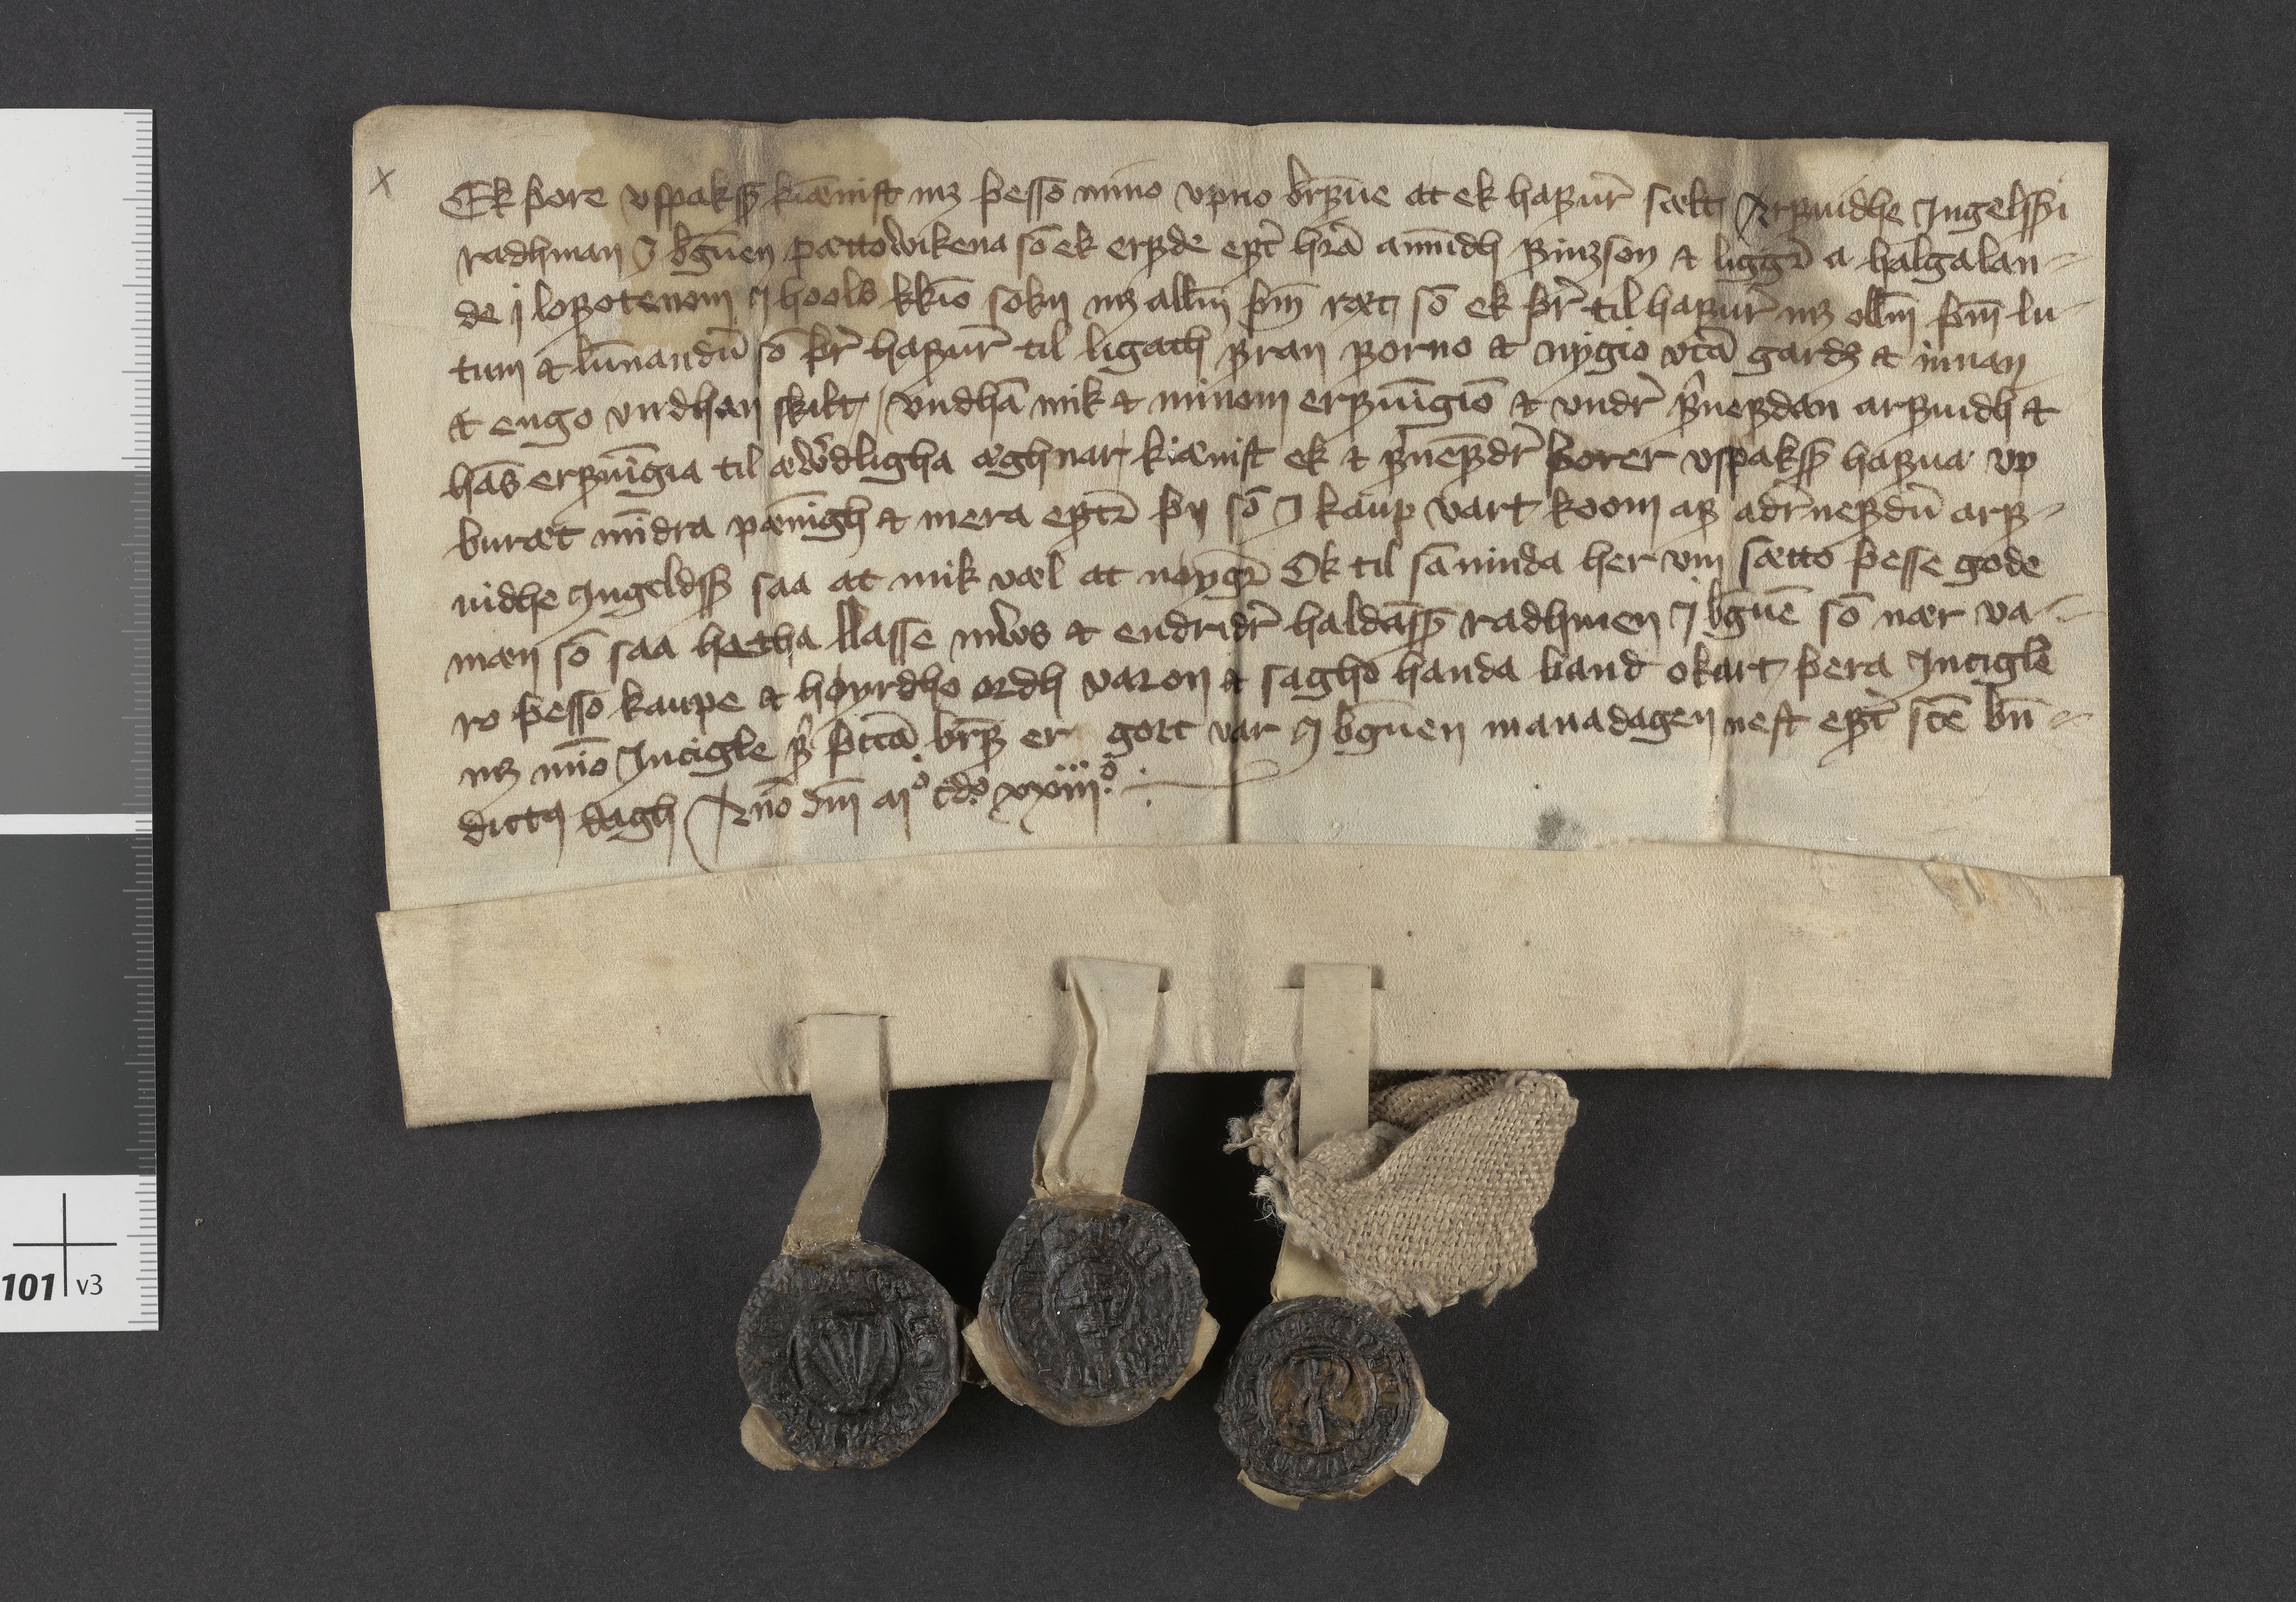 Ek þore vspaksẜ kiænist mꝫ þesso mino opno br̄fue at ek hafuir sælt Arfuidhe Jngelsẜi
radhman j bg̅uen pættowikena so̅ ek erfde ept̅ h̅ra amu̅dh finzson ⁊ liggr̅ a halgalan-
de j lofotenom j hools kkio̅ sokn mꝫ allu̅ þm̅ ræt so̅ ek þr̅ til hafuir mꝫ ollu̅ þm̅ lu-
tum ⁊ lu̅nandu̅ so̅ þr̅ hafuir til ligath fran forno ⁊ nygio vta̅ gardz ⁊ innan
⁊ engo vndhan skilt vndha̅ mik ⁊ minom erfui̅gio̅ ⁊ vndr̅ fr̅nefdan arfuidh ⁊
ha̅s erfui̅gia til æwr̅dligha æghnar kiænist ek ⁊ fr̅nefdr̅ þorer vspaksẜ hafua vp
buræt mi̅dra pæni̅gh ⁊ mera eptr̅ þy so̅ j kaup vart koom af adr̅nefdu̅ arf-
uidhe Jngeldsẜ saa at mik væl at nøygr̅ Ok til sa̅ninda her vm sætto þesse gode
mæn so̅ saa hætha llasse mws ⁊ endridr̅ halda̅sẜ radhmen j bg̅ue̅ so̅ nær va-
ro þesso kaupe ⁊ høyrdho ordh varon ⁊ sagho handa band okart þera Jncigle̅
mꝫ mi̅o Jncigle fr̅ þtta̅ br̅f er gort var j bg̅uen manadagen nest ept̅ sc̅e bn̅-
dicti dagh Anno dm̅ mº cdº xxiiiº
X
101 v3